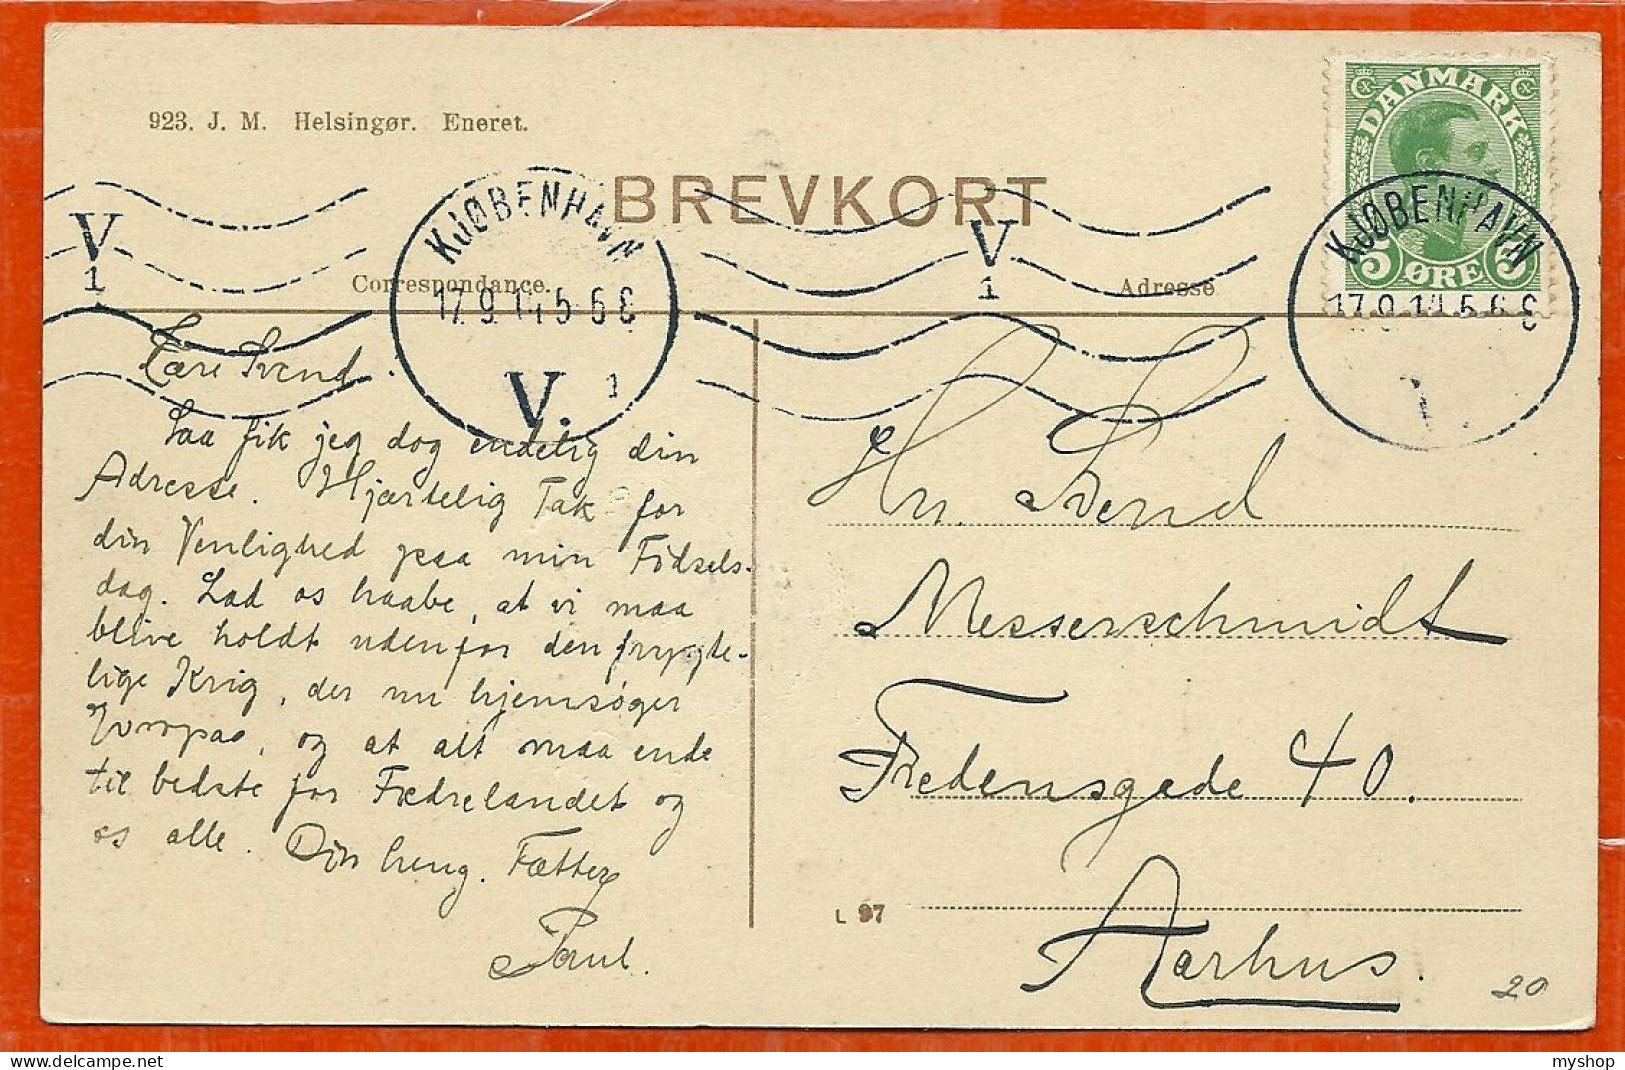 923. J. M. Helsingør. Eneret.
BREVKORT
DANMARK
5 ØRE 5
KJØBENHAVN
17.9.14 5-6 E
V. 1
V
1
V
1
KJØBENHAVN
17.9.14 5-6 E
Correspondance.
Adresse
Kære Svend.
Saa fik jeg dog endelig din
Adresse. Hjærtelig Tak for
din Venlighed paa min Födsels-
dag. Lad os haabe, at vi maa
blive holdt udenfor den frygte-
lige Krig, der nu hjemsøger
Europas, og at alt maa ende
til bedste for Fædrelandet og
os alle. Din heng. Fætter
Poul.
Hr. Svend
Messerschmidt
Fredensgade 40.
Aarhus.
L 97
20
myshop